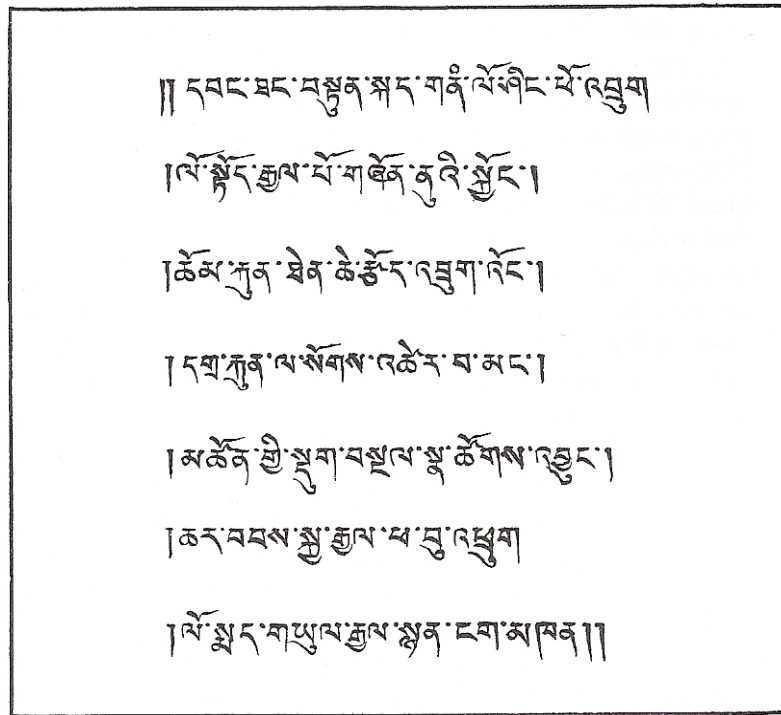 ༎ དབང་ཐང་བསྟུན་སྐད་གནཾ་ལོ་ཤིང་ཕོ་འབྲུག
།ལོ་སྟོད་རྒྱལ་པོ་གཞོན་ནུའི་སྐྱོང་།
།ཆོམ་རྐུན་ཐེན་ཆེ་རྩོད་འཁྲུག་འོང་།
།དགྲ་རྐུན་ལ་སོགས་འཚེར་བ་མང་།
།མཚོན་གྱི་སྡུག་བསྔལ་སྣ་ཚོགས་འབྱུང་།
།ཆར་བབས་སྐྱ་རྒྱལ་ཕ་བུ་འཕྲུག
།ལོ་སྨད་གཡུལ་རྒྱལ་སྙན་ངག་མཁན།།